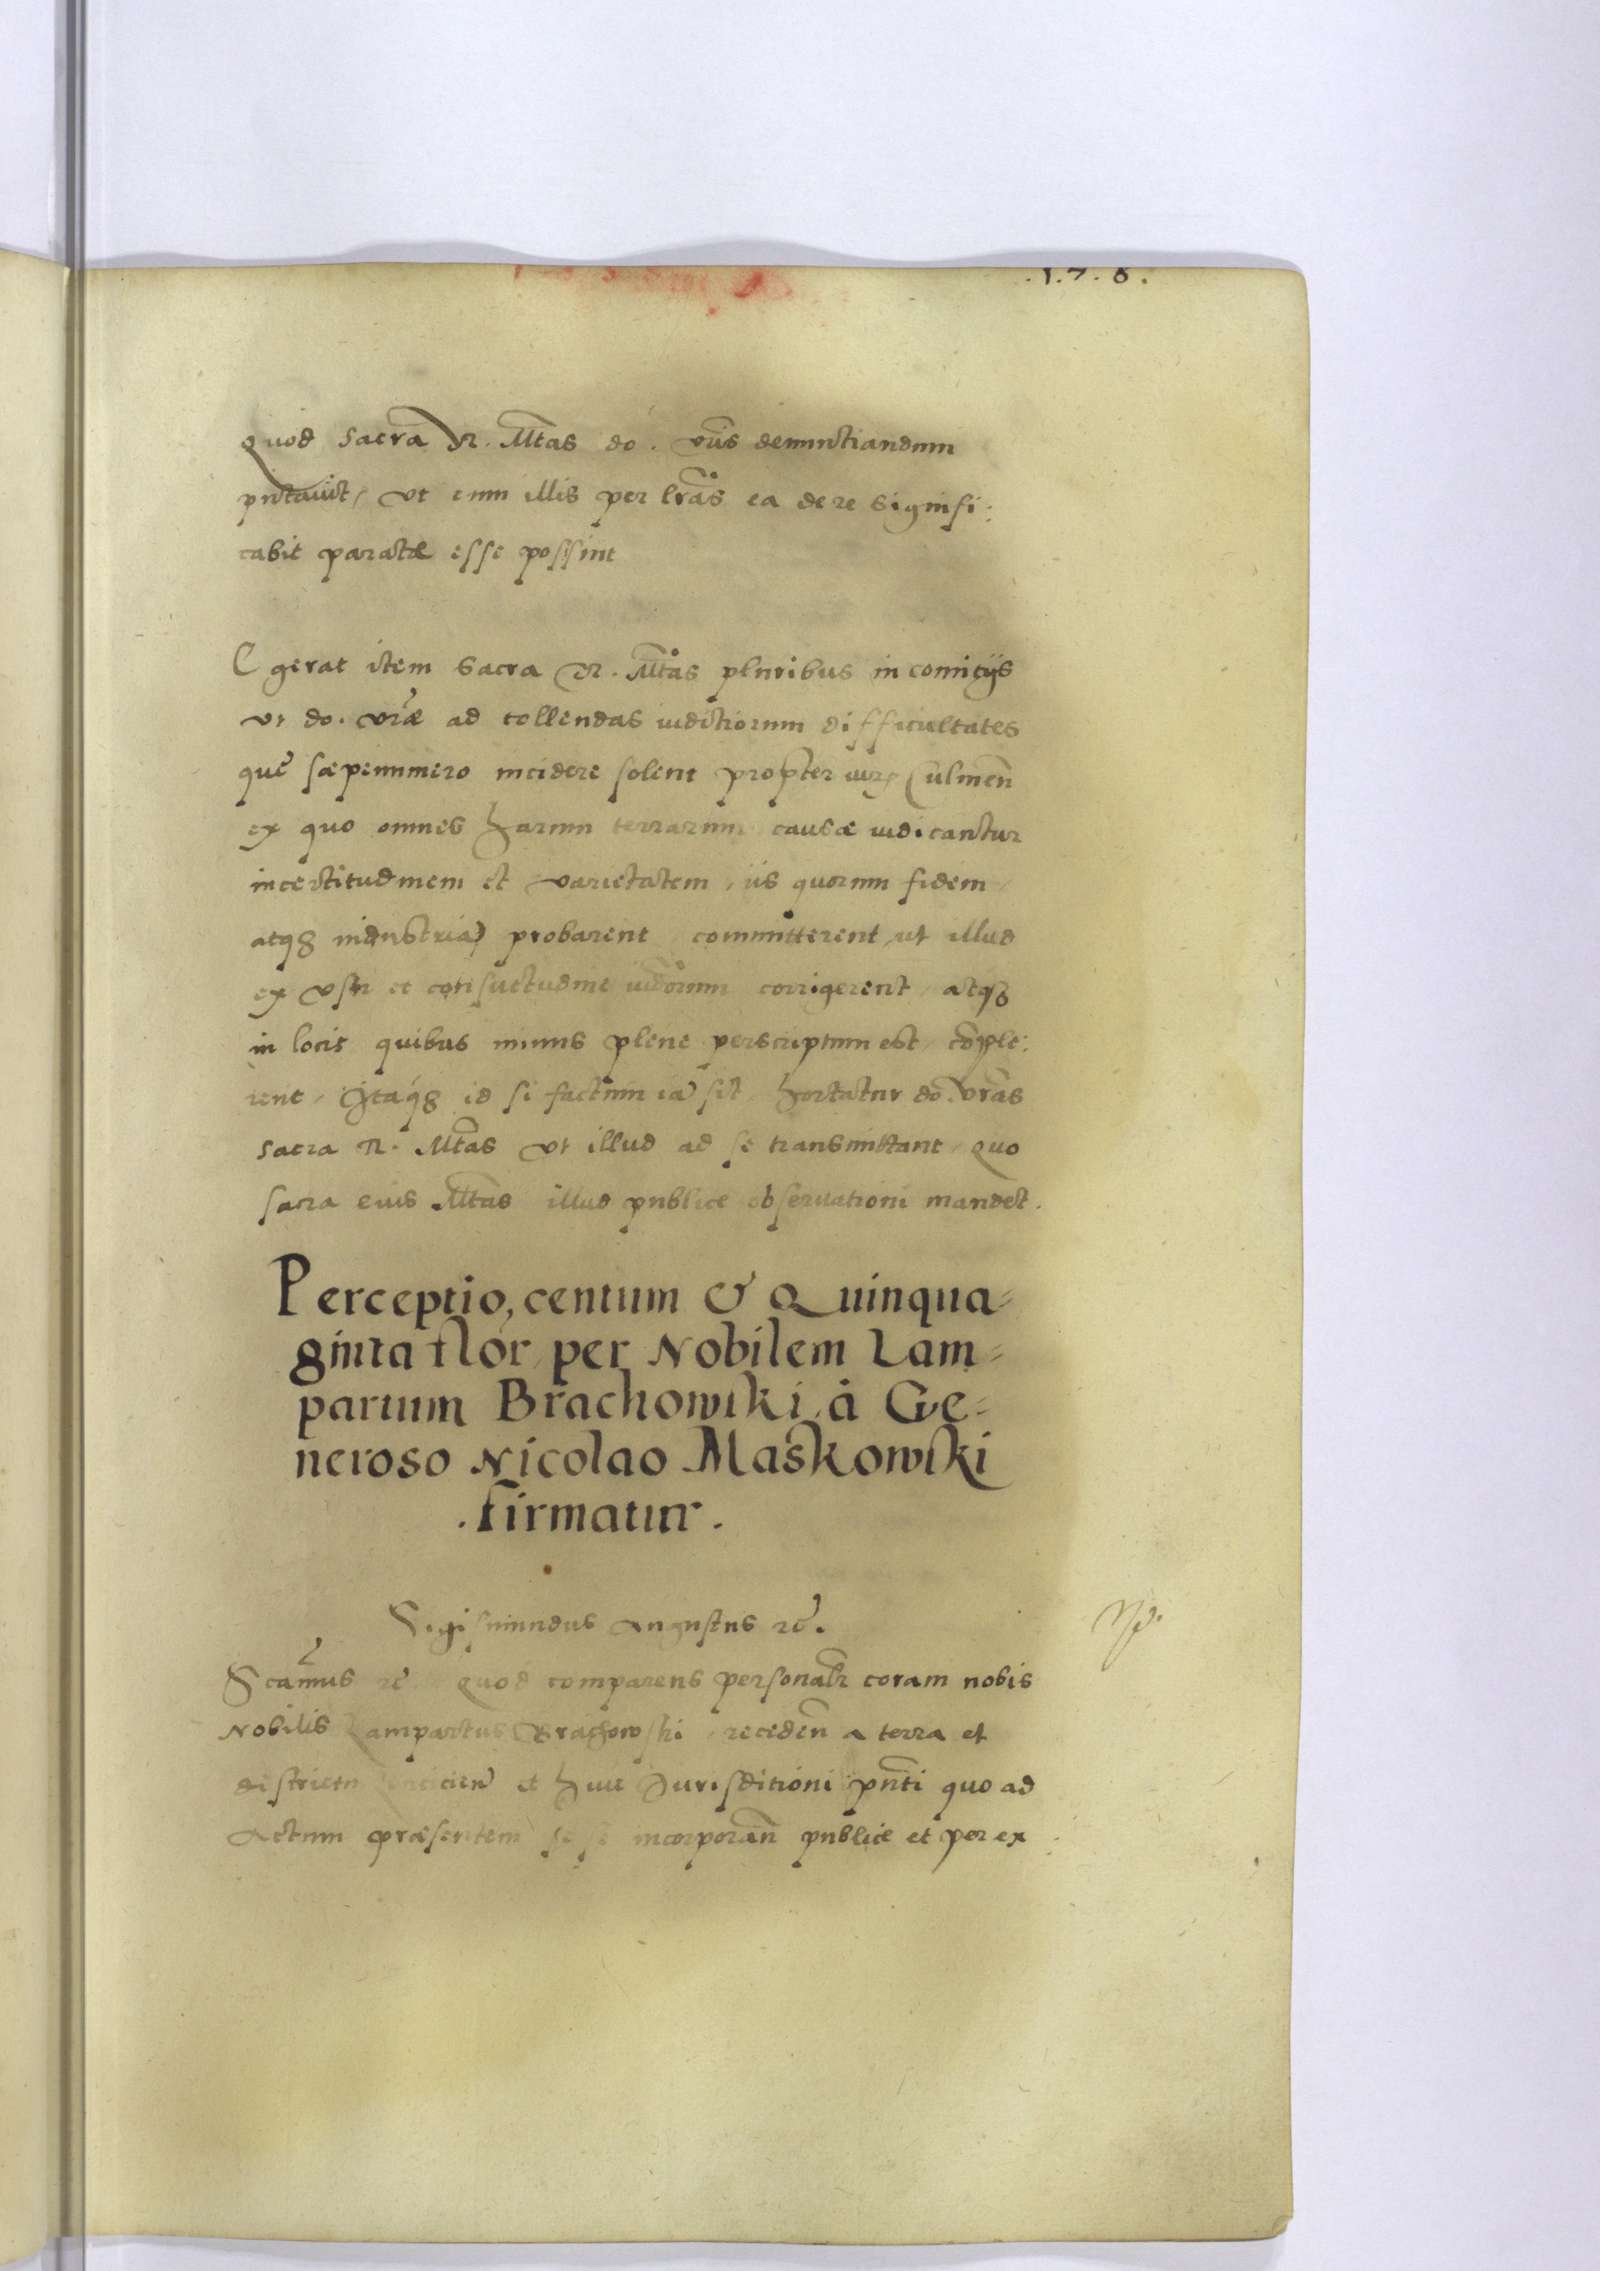 .1.7.8.
Quod Sacra R. Mtas do. vris denunctiandum
putavit, vt cum illis per lras ea de re signifi:
cabit paratæ esse possint
Egerat item Sacra R. Mtas pluribus in comitijs
vt do. vræ ad tollendas iudiciorum difficultates
que sæpenumero incidere solent propter iuris Culmen
ex quo omnes harum terrarum causæ iudicantur
incertitudinem et varietatem, iis quorum fidem
atq3 industria probarent committerent, ut illud
ex vsu et consuetudine iudiorum corrigerent, atq3
in locis quibus minus plene perscriptum est, cople:
rent, Itaq3 id si factum ia sit, hortatur do. vras
sacra R. Mtas vt illud ad se transmittant, quo
sacra eius Mtas illud publice observationi mandet.
Perceptio, centum & Quinqua=
ginta flor, per Nobilem Lam=
partum Brachowski, à Ge=
neroso Nicolao Maskowski
.firmatur.
Sigismundus Augustus rc.
Scamus rc. quod comparens personalr coram nobis
Nobilis Lampartus Brachowski, receden a terra et
districtu et huic Jurisditioni pnti quo ad
Actum præsentem se se incorporan publice et per ex